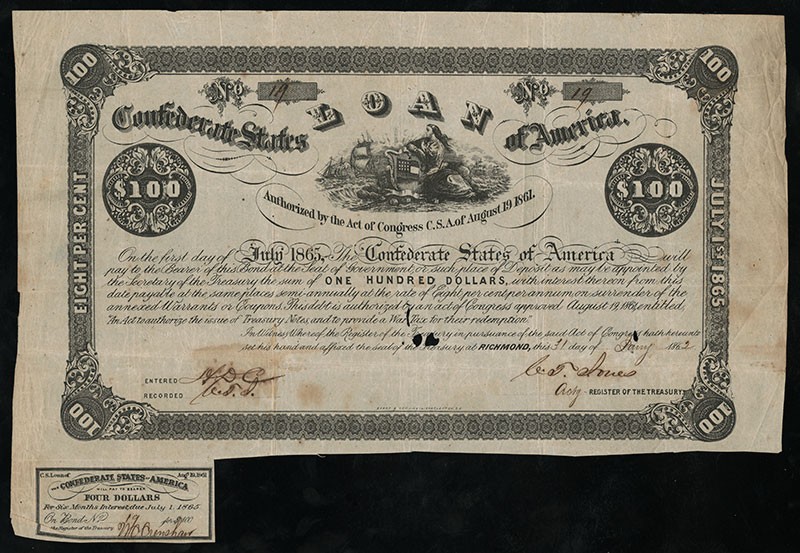 100
100
No 19
No 19
LOAN
Confederate States
of America.
$100
$100
Authorized by the Act of Congress C.S.A. of August 19, 1861.
EIGHT PER CENT
JULY 1ST 1865
On the first day of July 1865, The Confederate States of America will
pay to the Bearer of this Bond at the Seat of Government or such place of Deposit as may be appointed by
the Secretary of the Treasury the sum of ONE HUNDRED DOLLARS, with interest thereon from this
date payable at the same places semi-annually at the rate of Eight per cent per annum on surrender of the
annexed Warrants or Coupons. This debt is authorized by an act of Congress approved August 19, 1861, entitled,
"An Act to authorize the issue of Treasury Notes, and to provide a War Tax for their redemption."
In Witness Whereof the Register of the Treasury in pursuance of the said Act of Congress hath hereunto
set his hand and affixed the seal of the Treasury at RICHMOND, this 31 day of 1862
ENTERED
RECORDED C.T.J.
C. T. Jones
Actg REGISTER OF THE TREASURY
100
100
C.S. Loan of Augt 19, 1861
THE CONFEDERATE STATES OF AMERICA
WILL PAY TO BEARER
FOUR DOLLARS
For Six Months Interest, due July 1, 1865
On Bond No 19 for $100
for Register of the Treasury